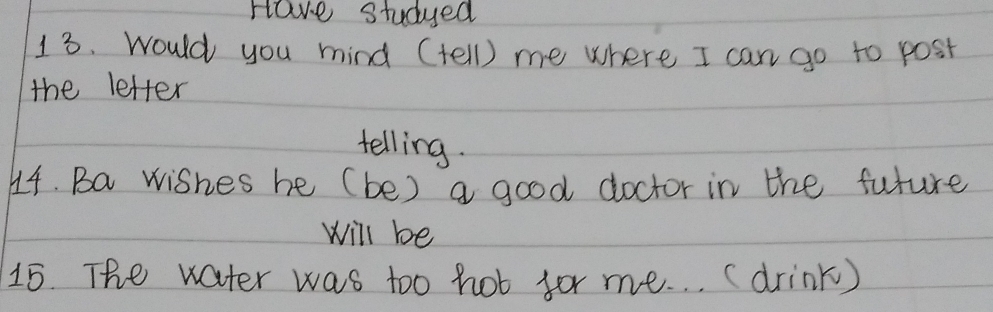 Have studyed
13. Would you mind (tell) me where I can go to post
the letter
telling.
14. Ba wishes he (be) a good doctor in the future
Will be
15. The water was too hot for me... (drink)